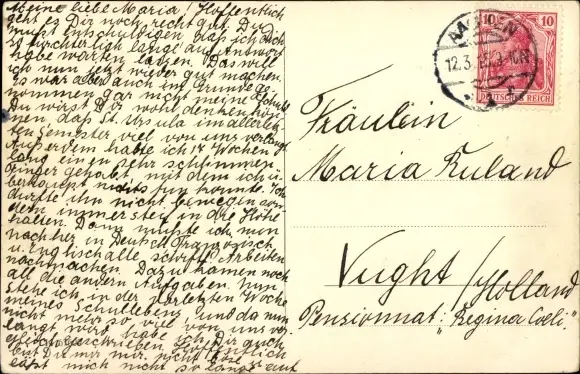 Meine liebe Maria! Hoffentlich
geht es Dir noch recht gut. Du
mußt entschuldigen, daß ich Dich
so fürchterlich lange auf Antwort
habe warten lassen. Das will
ich nun jetzt wieder gut machen.
Es war aber auch im Grunde ge-
nommen gar nicht meine Schuld.
Du wirst Dir wohl denken kön-
nen daß St. Ursula im allerletz-
ten Semester viel von uns verlangt.
Außerdem habe ich 14 Wochen
lang einen sehr schlimmen
Finger gehabt, mit dem ich ü-
berhaupt nichts tun konnte. Ich
durfte ihn nicht bewegen son-
dern immer stets in die Höhe
halten. Dann mußte ich nun
nachher in Deutsch, Französisch
u. Englisch alle schriftl. Arbeiten
nachmachen. Dazu kamen noch
all die andern Aufgaben. Nun
stehe ich in der vorletzten Woche
meines Schullebens, und da nun
nicht mehr so viel von uns ver-
langt wird habe ich Dir auch
geschrieben. Hoffentlich
bist Du mir nicht böse u.
läßt mich nicht so lange auf
AACHEN
12.3.
10
DEUTSCHES REICH
Fräulein
Maria Ruland
Vught / Holland
Pensionnat: „Regina Coeli."